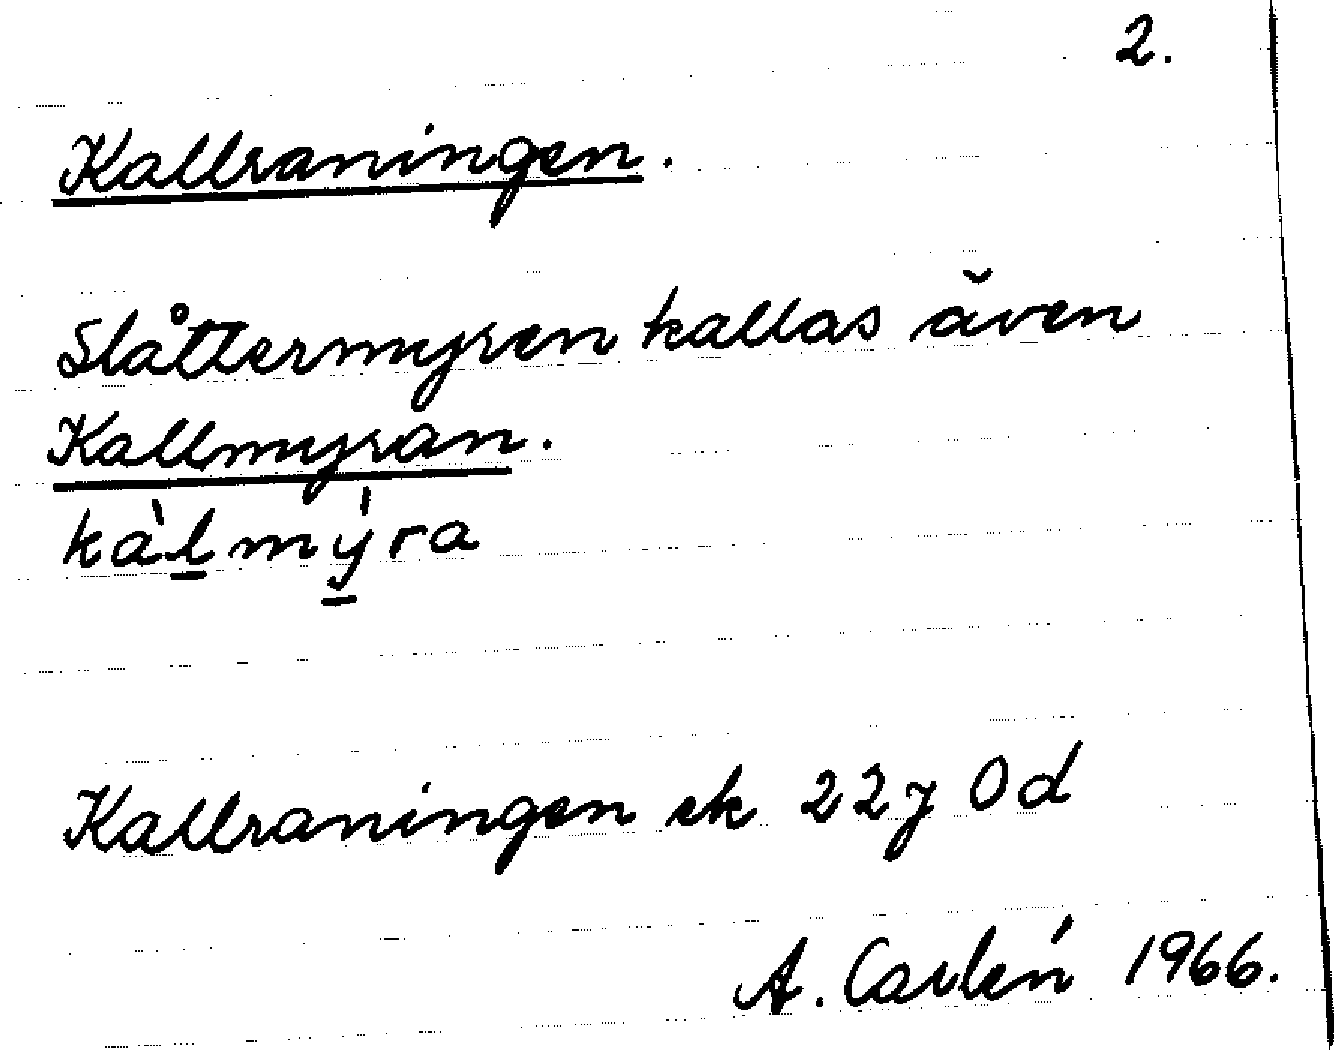 2.
Kallraningen.
Slåttermyren kallas även
Kallmyran.
kàl̲mý̲ra
Kallraningen ek 22j 0d
A. Carlén 1966.